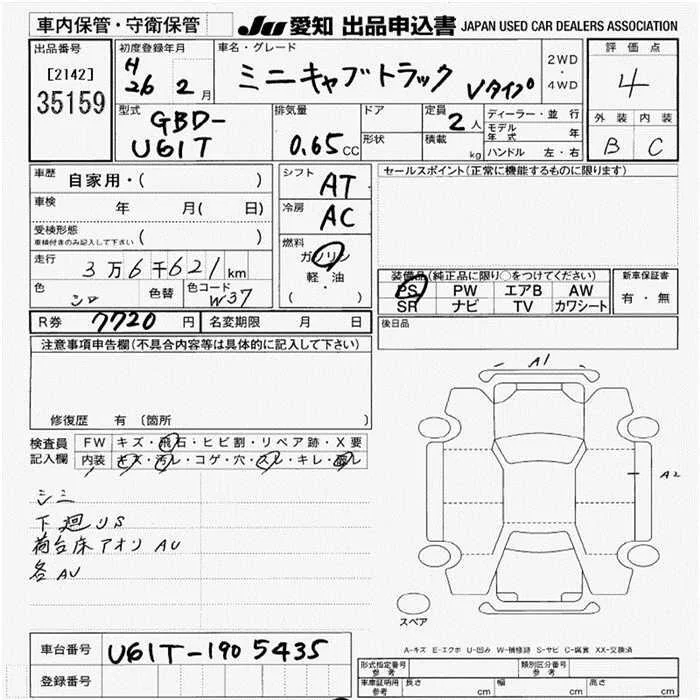 車内保管・守衛保管 JU 愛知 出品申込書 JAPAN USED CAR DEALERS ASSOCIATION
出品番号 初度登録年月 車名・グレード 評価点
[2142] H26年 2月 ミニキャブトラック Vタイプ 2WD・4WD 4
35159
型式 GBD-U61T 排気量 0.65CC ドア 定員 2人 ディーラー・並行 外装 内装
形状 積載 kg モデル年式 年 B C
ハンドル 左・右
車歴 自家用・( ) シフト AT セールスポイント(正常に機能するものに限ります)
車検 年 月( 日) 冷房 AC
受検形態 ( )
車検付きのみ記入して下さい
燃料 ガソリン
軽・油
( ・ )
走行 3万6千621km
色 シロ 色替 色コード W37
装備品(純正品に限り○をつけてください) 新車保証書
PS PW エアB AW 有・無
SR ナビ TV カワシート
R券 7720円 名変期限 月 日 後日品
注意事項申告欄(不具合内容等は具体的に記入して下さい)
修復歴 有(箇所 )
検査員記入欄 FW キズ・飛石・ヒビ割・リペア跡・X要
内装 キズ・汚レ・コゲ・穴・スレ・キレ・
A1
A2
シミ
下廻りS
荷台床アオリ AU
各AU
スペア
A-キズ E-エクボ U-凹み W-補修跡 S-サビ C-腐食 XX-交換済
車台番号 U61T-1905435
登録番号
形式指定番号 参考 類別区分番号 参考
車車証明用 参考 長さ cm 幅 cm 高さ cm